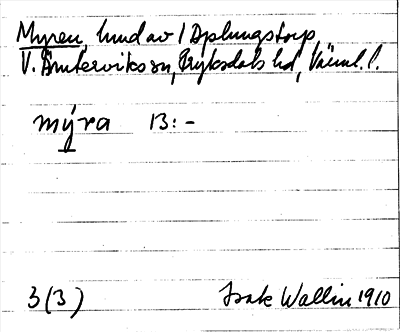 Myren, lund av / Applungstorp,
V. Ämterviks sn, Fryksdals hd, Värml. l.
mýra B: -
3(3) Isak Wallin 1910